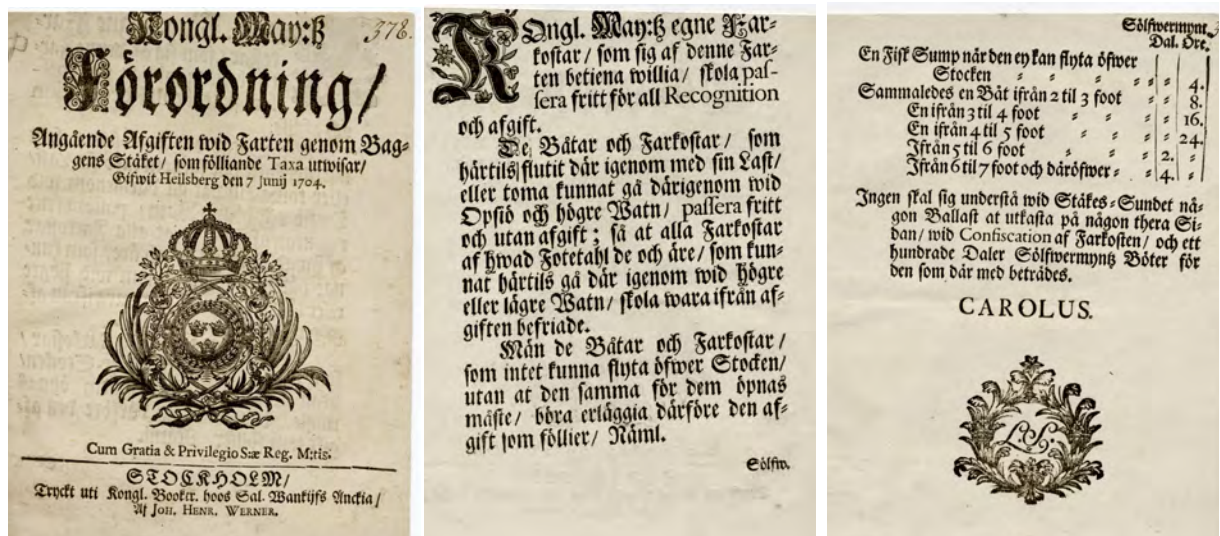 Kongl. May:tz
378.
Förordning/
Angående Afgiften wid Farten genom Bag-
gens Stäket/ som fölliande Taxa utwisar/
Gifwit Heilsberg den 7 Junij 1704.
Cum Gratia & Privilegio Sæ Reg. M:tis.
STOCKHOLM/
Tryckt uti Kongl. Booktr. hoos Sal. Wankijfs Änckia/
Af JOH. HENR. WERNER.
KOngl. May:tz egne Far-
kostar/ som sig af denne Far-
ten betiena willia/ skola pas-
sera fritt för all Recognition
och afgift.
De Båtar och Farkostar/ som
härtils flutit där igenom med sin Last/
eller toma kunnat gå därigenom wid
Opsiö och högre Watn/ passera fritt
och utan afgift; så at alla Farkostar
af hwad Fotetahl de och äre/ som kun-
nat härtils gå där igenom wid högre
eller lägre Watn/ skola wara ifrån af-
giften befriade.
Män de Båtar och Farkostar/
som intet kunna flyta öfwer Stocken/
utan at den samma för dem öpnas
måste/ böra erläggia därföre den af-
gift som föllier/ Näml.
Sölfw.
Sölfwermynt.
Dal. Öre.
En Fisk Sump när den ey kan flyta öfwer
Stocken - - - - - 4.
Sammaledes en Båt ifrån 2 til 3 foot - - 8.
En ifrån 3 til 4 foot - - - 16.
En ifrån 4 til 5 foot - - - 24.
Ifrån 5 til 6 foot - - - 2. -
Ifrån 6 til 7 foot och däröfwer - - 4. -
Ingen skal sig understå wid Stäkes-Sundet nå-
gon Ballast at utkasta på någon thera Si-
dan/ wid Confiscation af Farkosten/ och ett
hundrade Daler Sölfwermyntz Böter för
den som där med beträdes.
CAROLUS.
L.S.